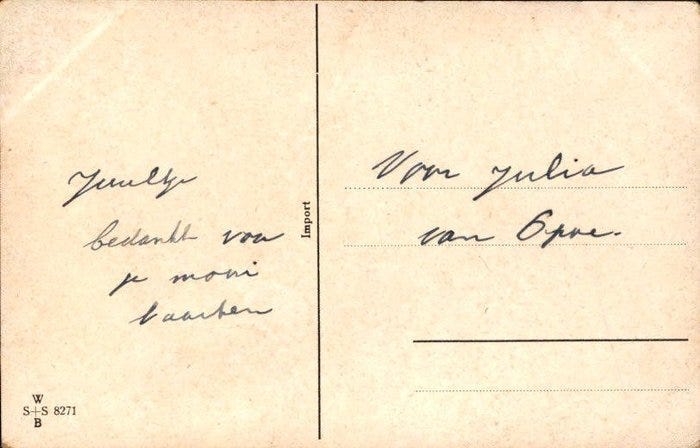 Juultje
bedankt voor
je mooi
kaarten
Import
Voor Julia
van Opoe.
W
S+S 8271
B